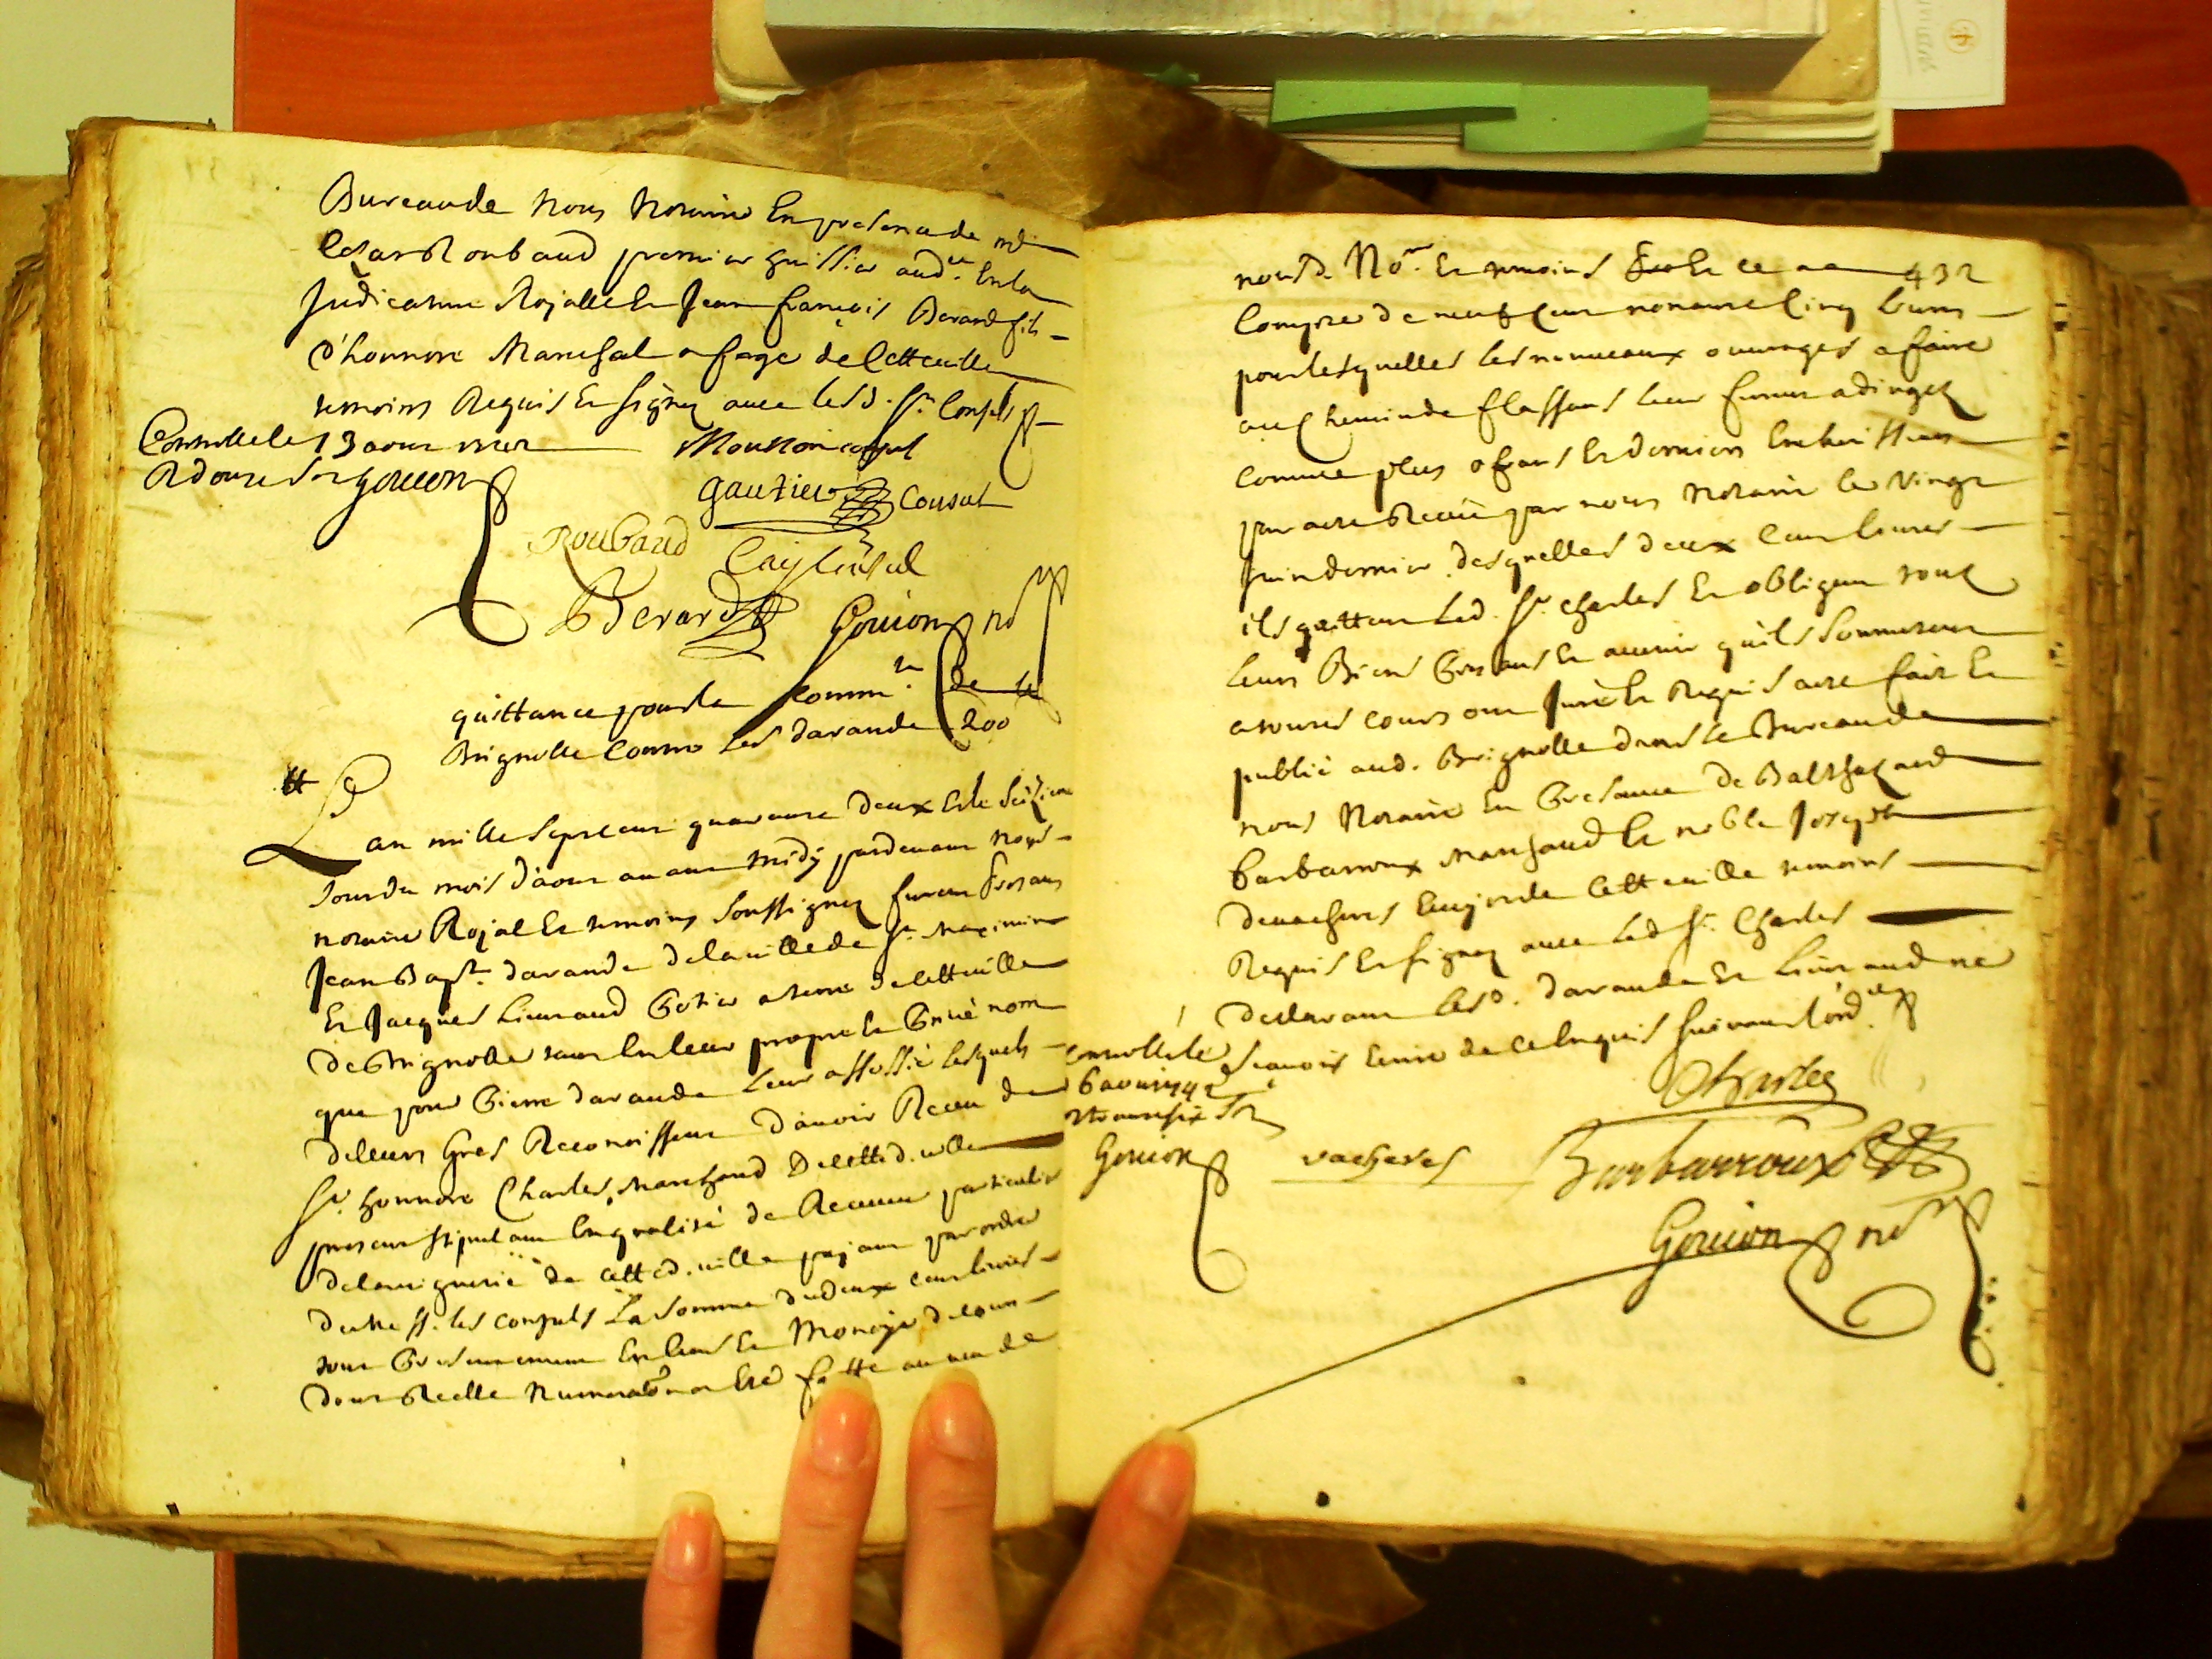 Bureau de nous notaire En presence de me
Cesar Roubaud premier huissier aud.er En la
Judicature Rojalle Et Jean françois Berard fils
d'honnore Marechal a forge de Cette ville
temoins Requis Et signez avec lesd. srs Consuls
Controlle le 13 aout 1742
R douze s. gouion
Mouttoin consul
gautier Consul
Roubaud
Cay Consul
Berard
Gouion no.re
quittance pour la Comm.té de
Brignolle Contre les davaude 200 tt
Lan mille sept cent quarante deux Et le seizieme
Jour du mois d'aout avant midy pardevant nous
notaire Rojal Et temoins soussignez furent presans
Jean Bap.te davaude de la ville de st. Maximin
Et Jacques Lieuraud Potier a terre de cette ville
de Brignolle tant En leur propre Et Privé nom
que pour Pierre davaude leur assossié lesquels
de leurs Grés Reconoissent d'avoir Receu de
sr. honnoré Charles, Marchand de Cetted. ville
present stipulant En qualité de Receveur particulier
de la viguerie de Cetted. ville pajant par ordre
de Mess. les consuls La somme de deux cent livres
tout Presentement En Ecus Et Monoje de cours
dont Reelle numeration a Eté faitte au veu de
nousd. No.re Et temoins Et ce a 432
Compte de neuf Cent nonante Cinq livres
pour lesquelles les nouveaux ouvrages a faire
au Chemin de flassans leur furent adingez
comme plus ofrans Et derniers Encherisseurs
par acte Receu par nous notaire le vingt
Juin dernier desquelles deux Cent livres
ils quittent Led. sr. Charles Et obligent tous
leurs Biens Presans Et avenir quils Soumettent
a toutes cours ont Juré Et Requis acte fait Et
publié aud. Brignolle dans le Bureau de
nous notaire En Presence de Balthazard
Barbarroux Marchand Et noble Joseph
de vacheres Ecuyer de Cette ville temoins
Requis Et signez avec Led sr. Charles
declarant lesd. davaude Et Lieuraud ne
Scavoir Ecrire de ce Enquis suivant lord.ce
Controlle le
16 aout 1742
R trente six s.
Gouion
Charles
vacheres
Barbarroux
Gouion no.re